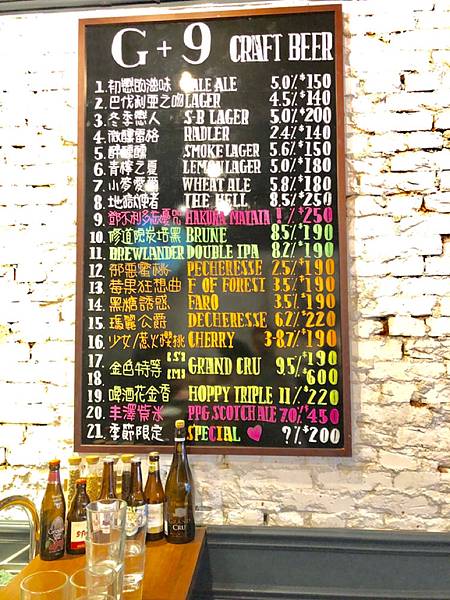 G + 9 CRAFT BEER
1. 初戀的滋味 PALE ALE 5.0% $150
2. 巴伐利亞之吻 LAGER 4.5% $140
3. 冬季戀人 S-B LAGER 5.0% $200
4. 微醺雷格 RADLER 2.4% $140
5. SMOKE LAGER 5.6% $150
6. 青檸之夏 LEMON LAGER 5.0% $180
7. 小麥愛 WHEAT ALE 5.8% $180
8. 地獄使者 THE HELL 8.5% $250
9. HAKUNA MATATA !% $250
10. 修道院炭培黑 BRUNE 8.5% $190
11. BREWLANDER DOUBLE IPA 8.2% $190
12. 邪惡蜜桃 PECHERESSE 2.5% $190
13. 莓果狂想曲 F OF FOREST 3.5% $190
14. 黑糖誘惑 FARO 3.5% $190
15. 瑪麗公爵 DECHERESSE 6.2% $220
16. 少女/惹火櫻桃 CHERRY 3-8.7% $190
17. 金色特等 [S] GRAND CRU 9.5% $190
18. [M] $600
19. 啤酒花金香 HOPPY TRIPLE 11% $220
20. 丰澤紫米 PPG SCOTCH ALE 7.0% $450
21. 季節限定 SPECIAL ?% $200
GRAND
CRU